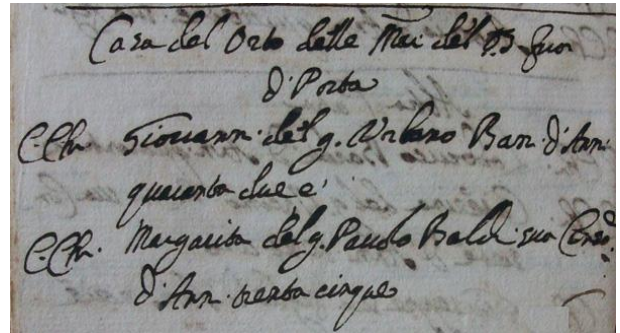 Casa del Orto delle Mci del SS fuor
d'Porta
C. Ch. Giouanni del q. Vrbano Ban. d'Ann.
quaranta due e'
C. Ch. Margarita del q. Pauolo Baldi sua Conso.
d'Ann. trenta cinque